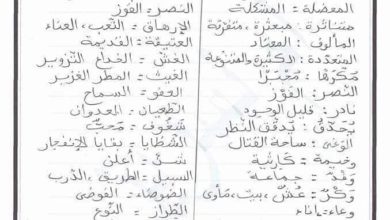 المعضلة = المشكلة
متناثرة = مبعثرة، متفرقة
المألوف = المعتاد
المتعددة = الكثيرة والمتنوعة
النصر = الفوز
نادر = قليل الوجود
يحدق = تدقق النظر
الوغى = ساحة القتال
وخيمة = كارثية
وفد = جماعة
وكر = عش، بيت، مأوى
وعاء = إناء
النصر = الفوز
الإرهاق = التعب، العناء
العتيقة = القديمة
الغش = الخداع التزوير
الغيث = المطر الغزير
العفو = السماح
الطغيان = العدوان
شغوف = محب
الشظايا = بقايا الإنفجار
شن = أعلن
السبيل = الطريق، الدرب
الضوضاء = الفوضى
الطراز = النوع